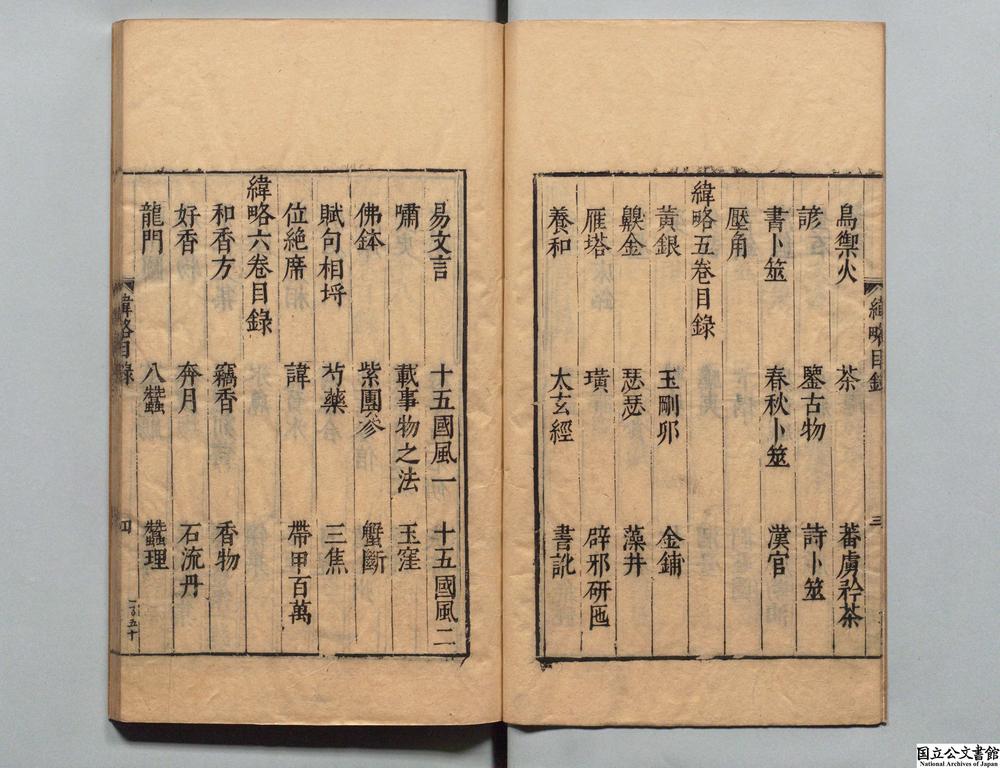 鳥禦火 茶 蕃虜矜茶
諺 鑒古物 詩卜筮
書卜筮 春秋卜筮 漢官
壓角
緯略五卷目錄
黃銀 玉剛卯 金鋪
鶪金 瑟瑟 藻井
雁塔 璜 辟邪硏匜
養和 太玄經 書訛
緯略目錄 三
易文言 十五國風一 十五國風二
嘯 載事物之法 玉窪
佛鉢 紫團參 蟹斷
賦句相埒 芍藥 三焦
位絶席 諱 帶甲百萬
緯略六卷目錄
和香方 竊香 香物
好香 奔月 石流丹
龍門 八蠶 蠶理
緯略目錄 四
国立公文書館
National Archives of Japan